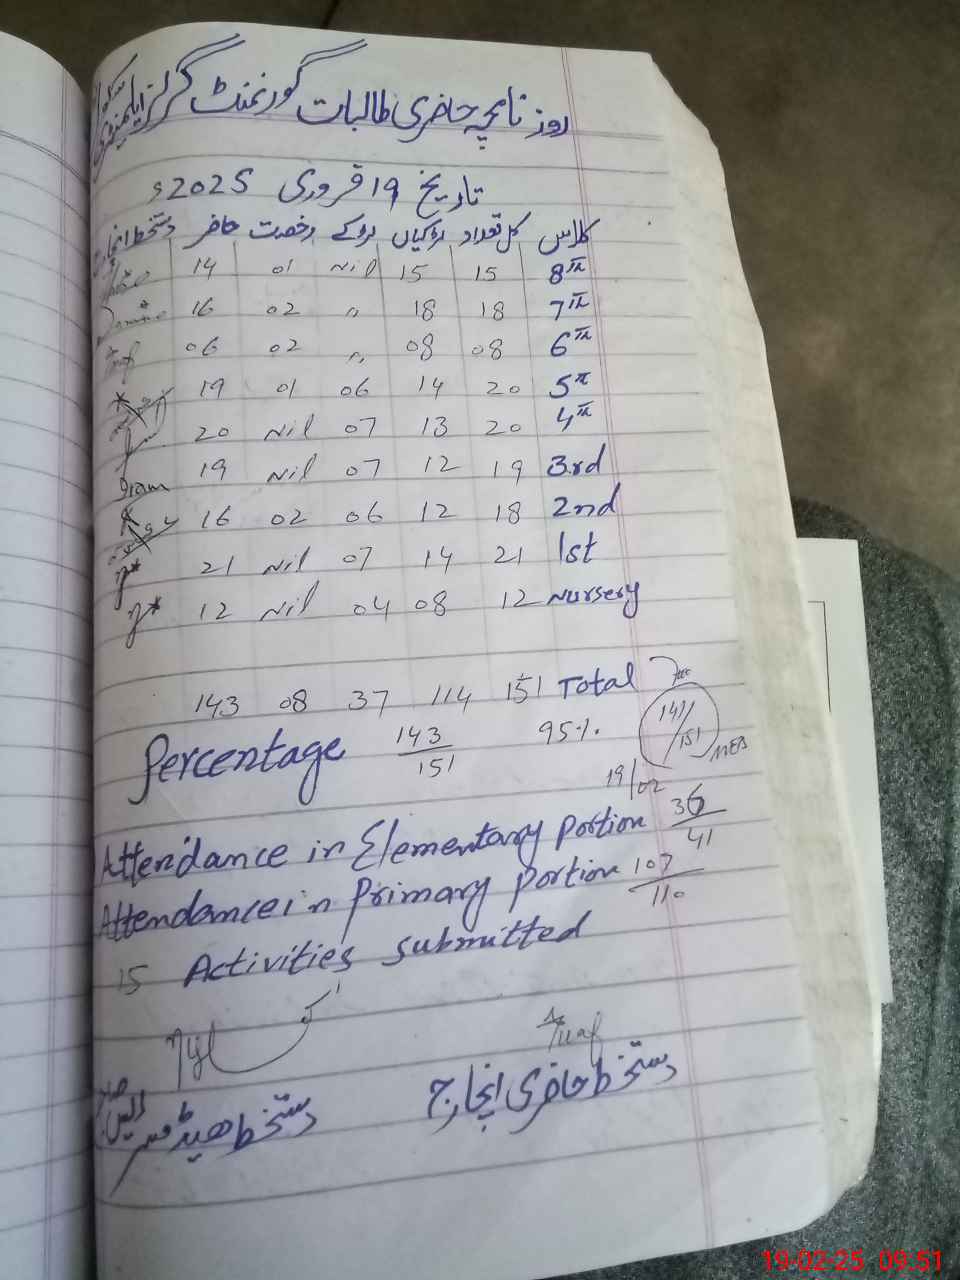 روزنامچہ حاضری طالبات گورنمنٹ گرلز ایلیمنٹری سکول
تاریخ 19 فروری 2025ء
کلاس کل تعداد لڑکیاں لڑکے رخصت حاضر دستخط انچارج
8th 15 15 Nil 01 14
7th 18 18 " 02 16
6th 08 08 " 02 06
5th 20 14 06 01 19
4th 20 13 07 Nil 20
3rd 19 12 07 Nil 19
2nd 18 12 06 02 16
1st 21 14 07 Nil 21
Nursery 12 08 04 Nil 12
Total 151 114 37 08 143
Percentage 143/151 95%. 141/151 MEB
19/02
Attendance in Elementary portion 36/41
Attendance in Primary portion 107/110
15 Activities submitted
دستخط حاضری انچارج
دستخط ہیڈ مسٹریس
19-02-25 09:51